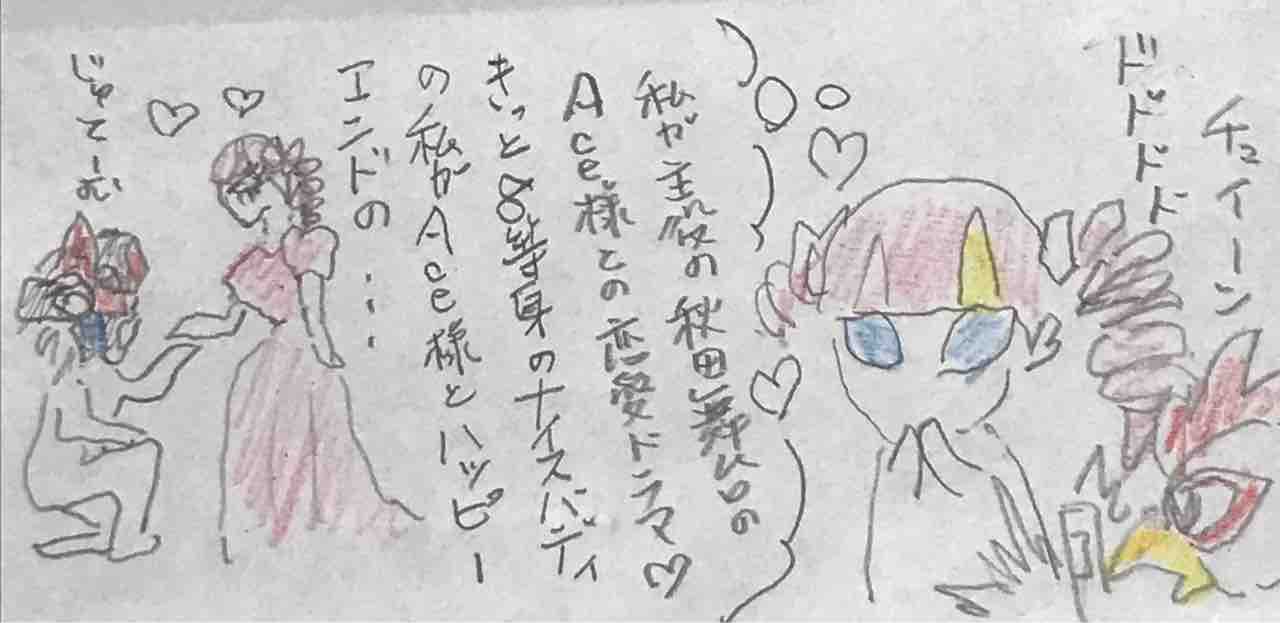 チュイーン
ドドドド
私が主役の秋田舞いの
Ace様との恋愛ドラマ♡
きっと8等身のナイスバディ
の私がAce様とハッピー
エンドの・・・
じゅてーむ